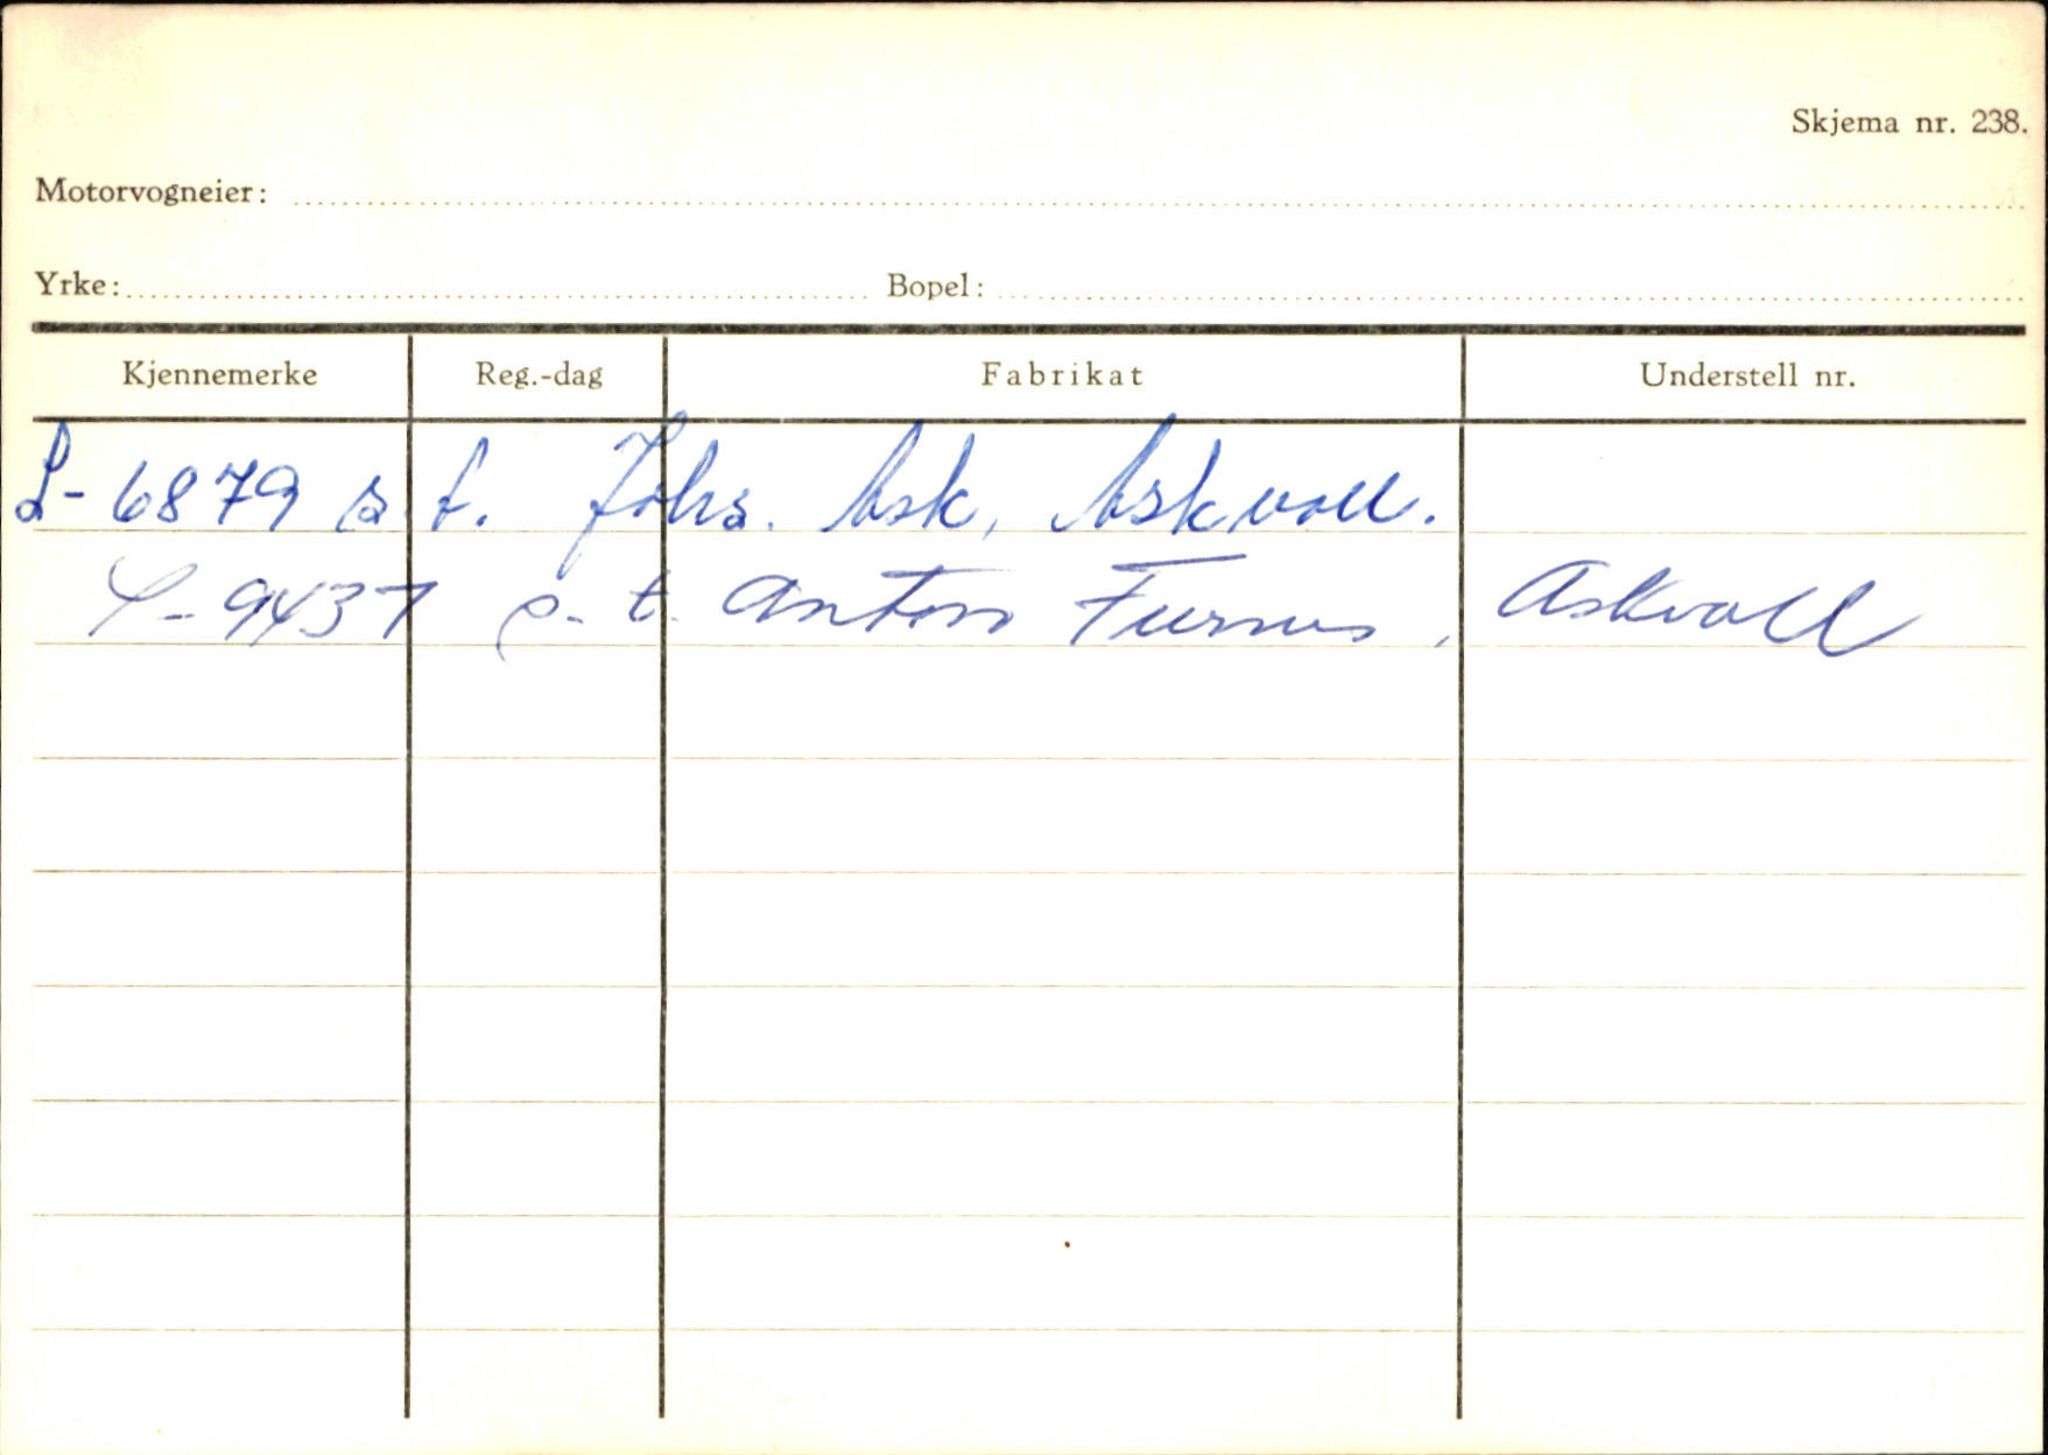 Skjema nr. 238.
Motorvogneier:
Yrke: Bopel:
Kjennemerke Reg.-dag Fabrikat Understell nr.
S-6879 s. t. Johs. Ask, Askvoll.
S-9437 s. t. Anton Furnes, Askvoll